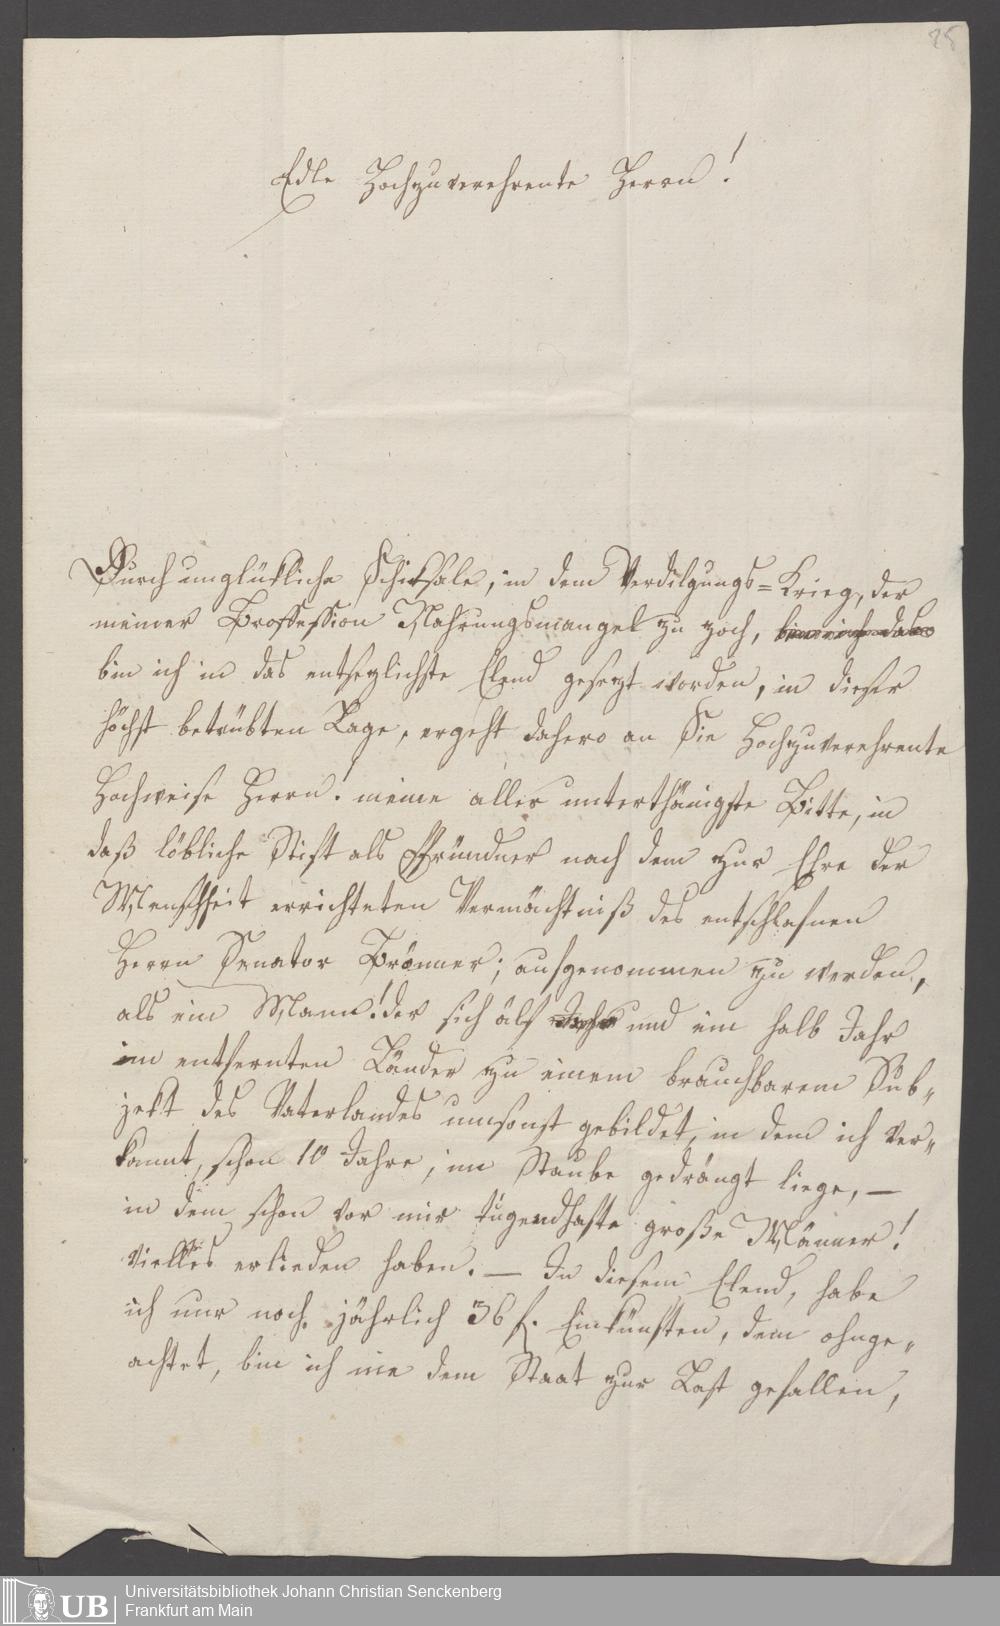 85
Edle Hochzuverehrente Herrn!
Durch unglükliche Schiksale, in dem Verdilgungs=Krieg, der
meiner Proffession Nahrungsmangel zu zoch, bin ich daher
bin ich in das entsezlichste Elend gesezt worden, in dieser
höchst betrübten Lage, ergeht dahero an Sie Hochzuverehrente
Hochweise Herrn! meine aller unterthänigste Bitte, in
daß löbliche Stift als Pfründner nach dem zur Ehre der
Menschheit errichteten Vermächtniß des entschlafnen
Herrn Senator Brönner; aufgenommen zu werden,
als ein Mann! der sich älf Jahr und ein halb Jahr
in entfernten Länder zu einem brauchbarem Sub„
jekt des Vaterlandes umsonst gebildet, in dem ich ver„
kannt, schon 10 Jahre, im Staube gedrängt liege, —
in dem schon vor mir tugendhafte große Männer!
vielles erlieden haben. — In diesem Elend, habe
ich nur noch jährlich 36 f. Einkünften, dem ohnge„
achtet, bin ich nie dem Staat zur Last gefallen,
UB
Universitätsbibliothek Johann Christian Senckenberg
Frankfurt am Main